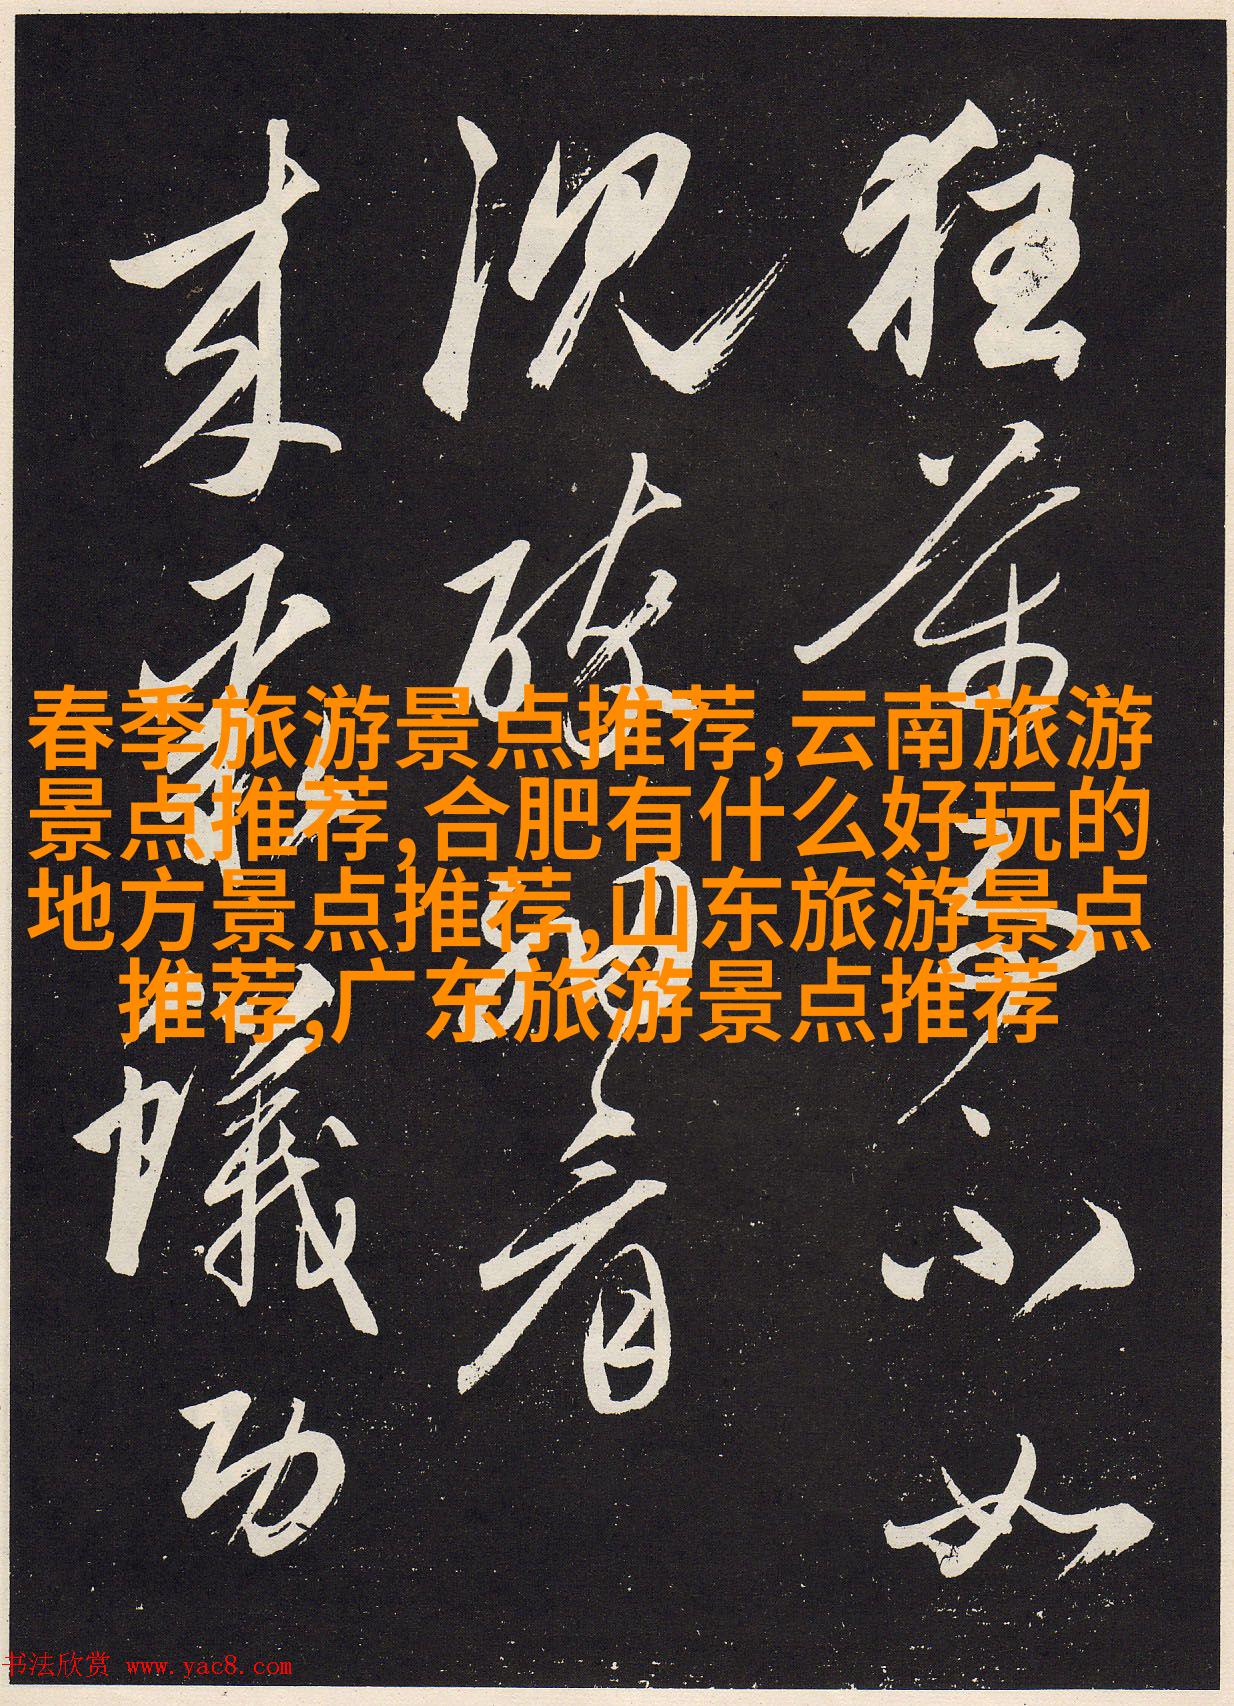 狂 不如
况 看
蟻功
春季旅游景点推荐,云南旅游
景点推荐,合肥有什么好玩的
地方景点推荐,山东旅游景点
推荐,广东旅游景点推荐
书法欣赏 www.yac8.com